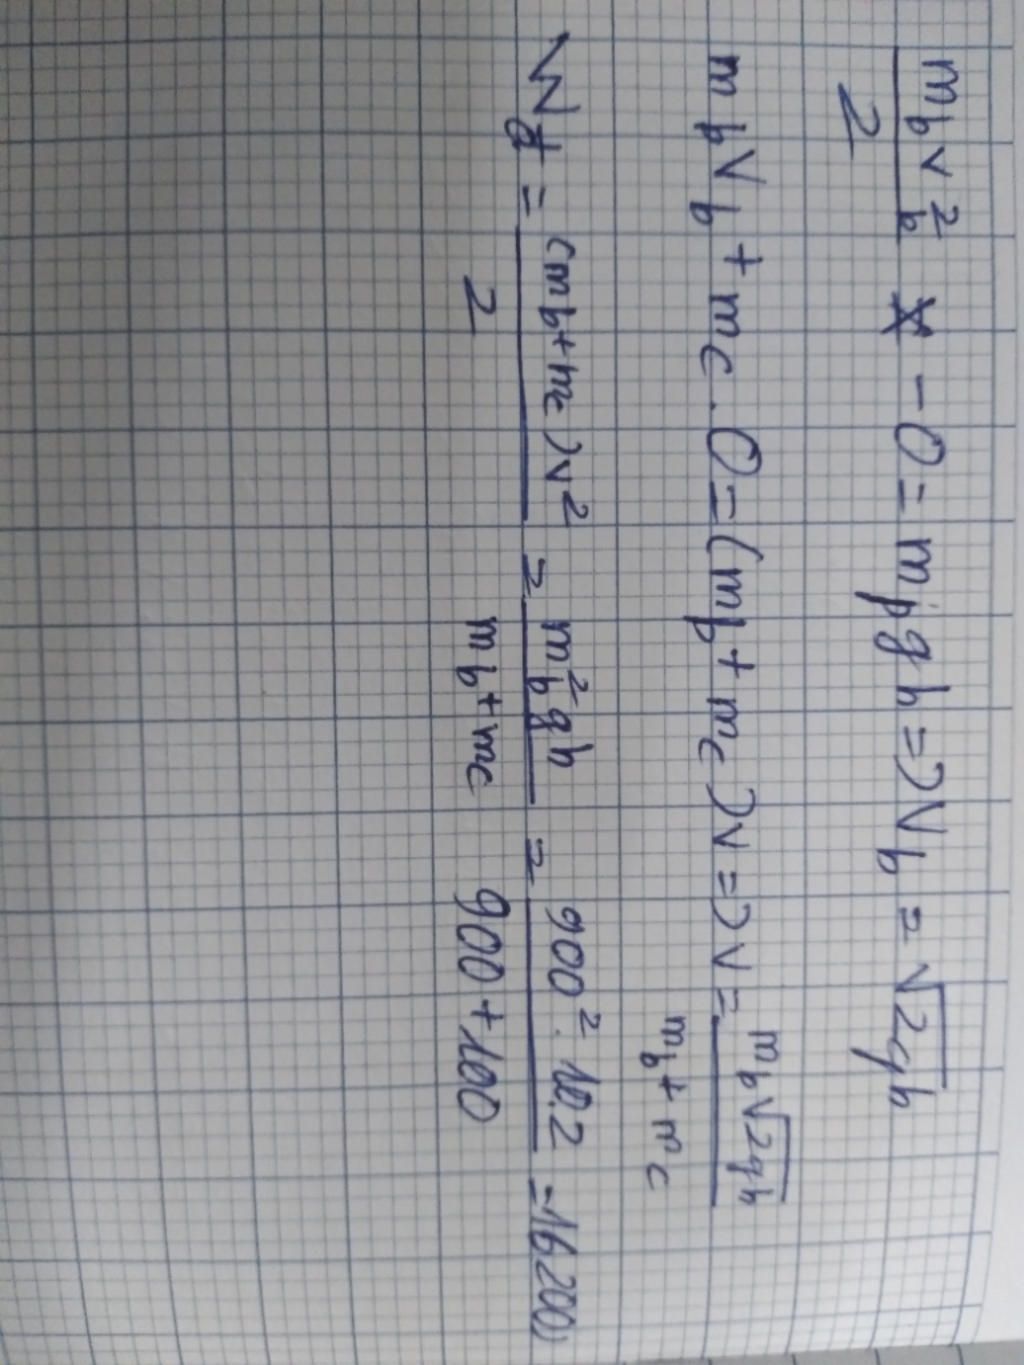 m_b v_b^2 / 2 - 0 = m_b g h => v_b = √2gh
m_b v_b + m_c . 0 = (m_b + m_c) v => v = m_b √2gh / m_b + m_c
W_đ = (m_b + m_c) v^2 / 2 = m_b^2 g h / m_b + m_c = 900^2 . 10.2 / 900 + 100 = 16200J